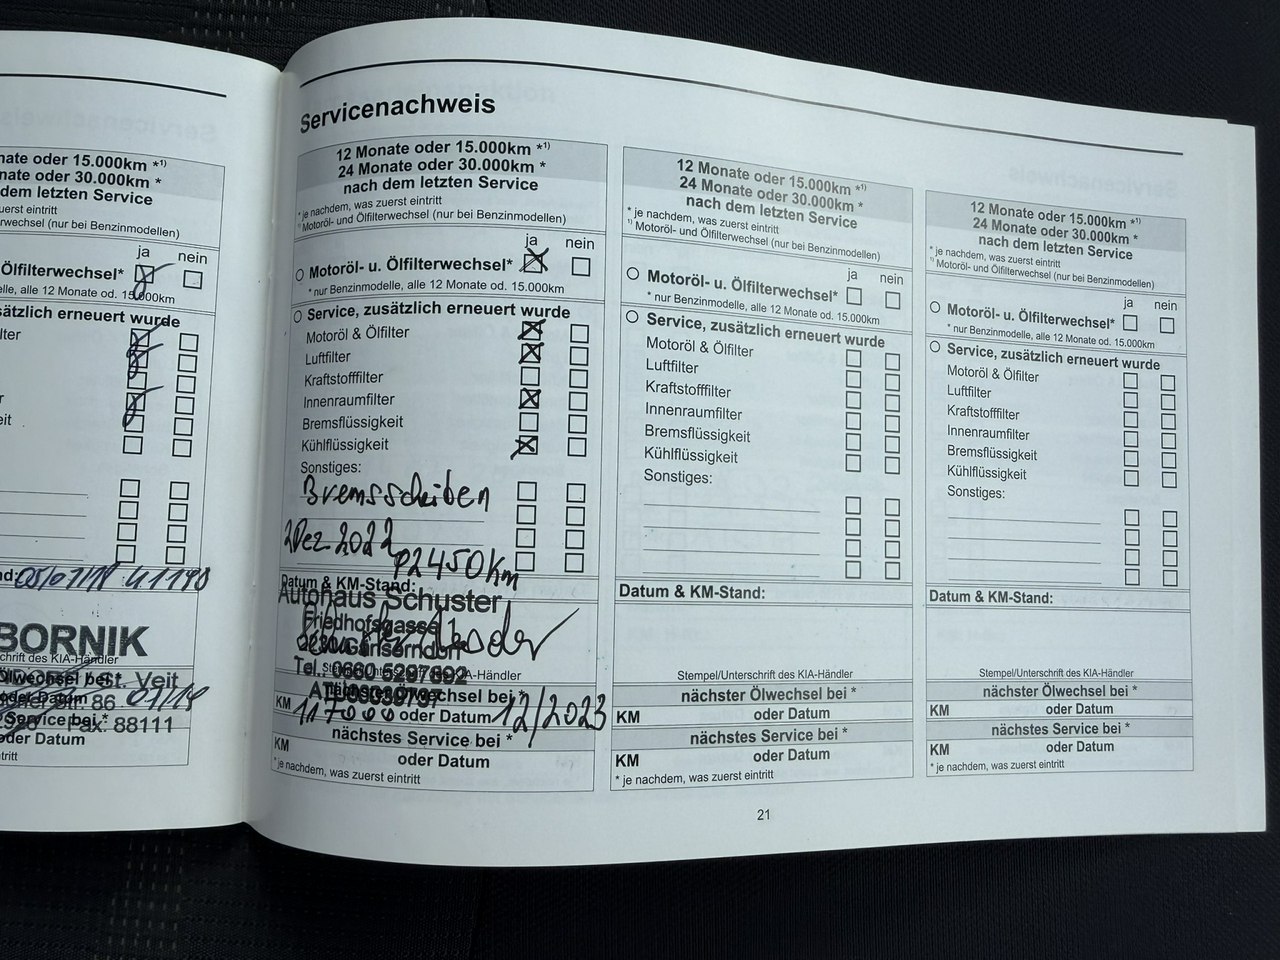 nate oder 15.000km *¹⁾
nate oder 30.000km *
dem letzten Service
uerst eintritt
rwechsel (nur bei Benzinmodellen)
ja nein
Ölfilterwechsel*
elle, alle 12 Monate od. 15.000km
sätzlich erneuert wurde
lter
r
eit
nd: 05/07/18 41190
BORNIK
chrift des KIA-Händler
St. Veit
Ölwechsel bei *
Str. 86 07/19
oder Datum
Service bei *
Fax: 88111
oder Datum
tritt
Servicenachweis
12 Monate oder 15.000km *¹⁾
24 Monate oder 30.000km *
nach dem letzten Service
* je nachdem, was zuerst eintritt
¹⁾ Motoröl- und Ölfilterwechsel (nur bei Benzinmodellen)
ja nein
Motoröl- u. Ölfilterwechsel*
* nur Benzinmodelle, alle 12 Monate od. 15.000km
Service, zusätzlich erneuert wurde
Motoröl & Ölfilter
Luftfilter
Kraftstofffilter
Innenraumfilter
Bremsflüssigkeit
Kühlflüssigkeit
Sonstiges:
Bremsscheiben
2 Dez. 2022
92450 km
Datum & KM-Stand:
Autohaus Schuster
Friedhofsgasse 1
2230 Gänserndorf
Tel.: 0660 5297892
KIA-Händler
nächster Ölwechsel bei *
KM 117000 oder Datum 12/2023
nächstes Service bei *
KM oder Datum
* je nachdem, was zuerst eintritt
12 Monate oder 15.000km *¹⁾
24 Monate oder 30.000km *
nach dem letzten Service
* je nachdem, was zuerst eintritt
¹⁾ Motoröl- und Ölfilterwechsel (nur bei Benzinmodellen)
ja nein
Motoröl- u. Ölfilterwechsel*
* nur Benzinmodelle, alle 12 Monate od. 15.000km
Service, zusätzlich erneuert wurde
Motoröl & Ölfilter
Luftfilter
Kraftstofffilter
Innenraumfilter
Bremsflüssigkeit
Kühlflüssigkeit
Sonstiges:
Datum & KM-Stand:
Stempel/Unterschrift des KIA-Händler
nächster Ölwechsel bei *
KM oder Datum
nächstes Service bei *
KM oder Datum
* je nachdem, was zuerst eintritt
12 Monate oder 15.000km *¹⁾
24 Monate oder 30.000km *
nach dem letzten Service
* je nachdem, was zuerst eintritt
¹⁾ Motoröl- und Ölfilterwechsel (nur bei Benzinmodellen)
ja nein
Motoröl- u. Ölfilterwechsel*
* nur Benzinmodelle, alle 12 Monate od. 15.000km
Service, zusätzlich erneuert wurde
Motoröl & Ölfilter
Luftfilter
Kraftstofffilter
Innenraumfilter
Bremsflüssigkeit
Kühlflüssigkeit
Sonstiges:
Datum & KM-Stand:
Stempel/Unterschrift des KIA-Händler
nächster Ölwechsel bei *
KM oder Datum
nächstes Service bei *
KM oder Datum
* je nachdem, was zuerst eintritt
21